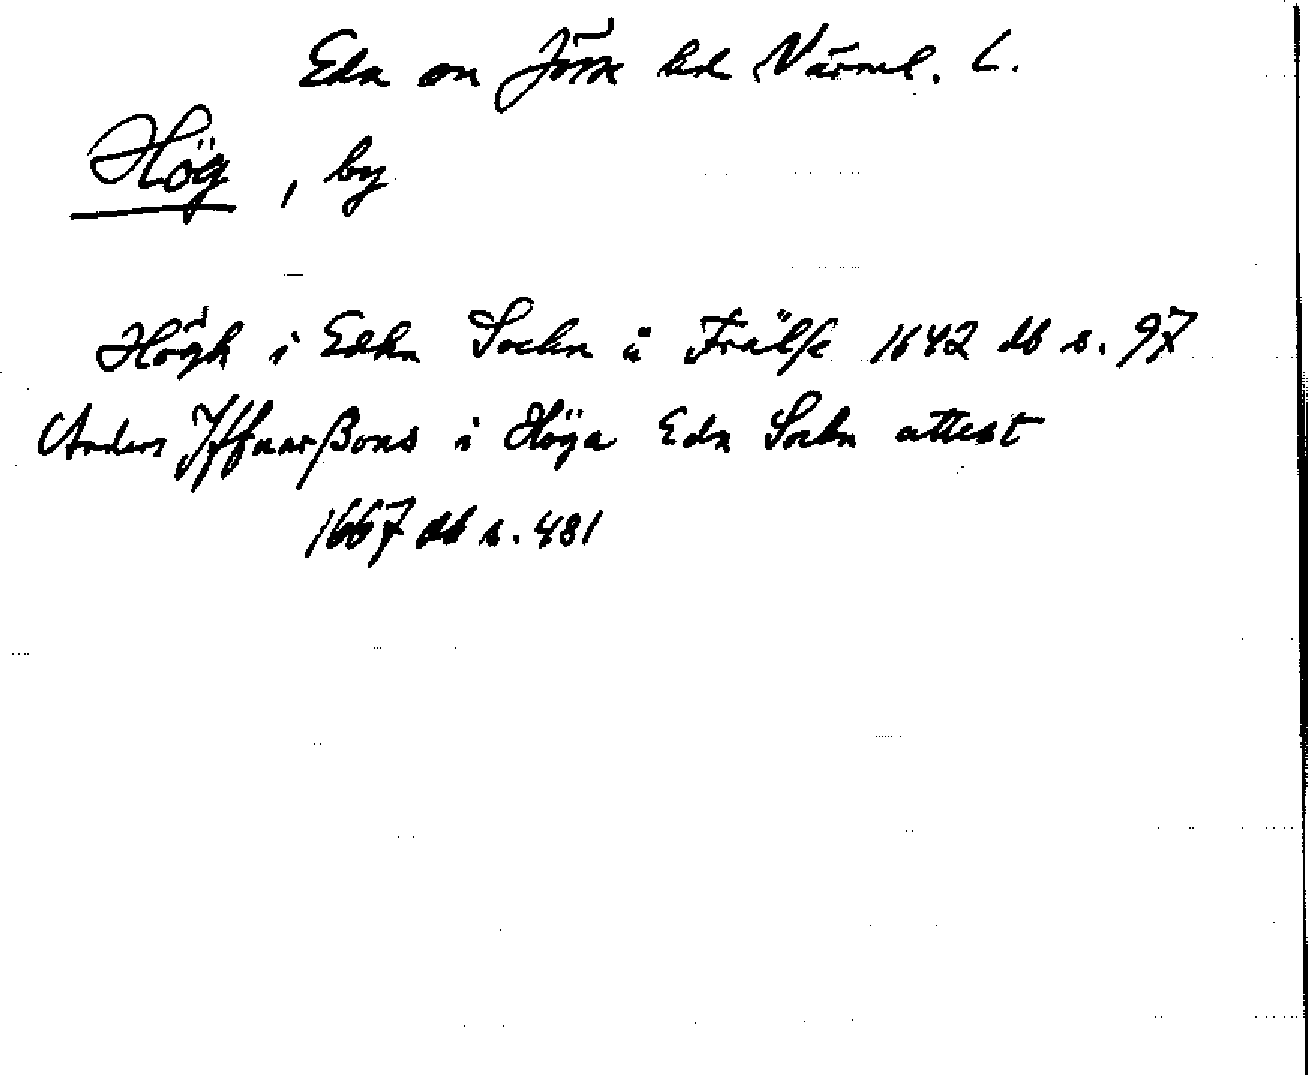 Eda sn Jösse hd Värml. L.
Hög, by
Högh i Edha Sochn ü Frälse 1642 db s. 97
Anders Jffuarßons i Höga Eda Sochn attest
1667 db s. 481